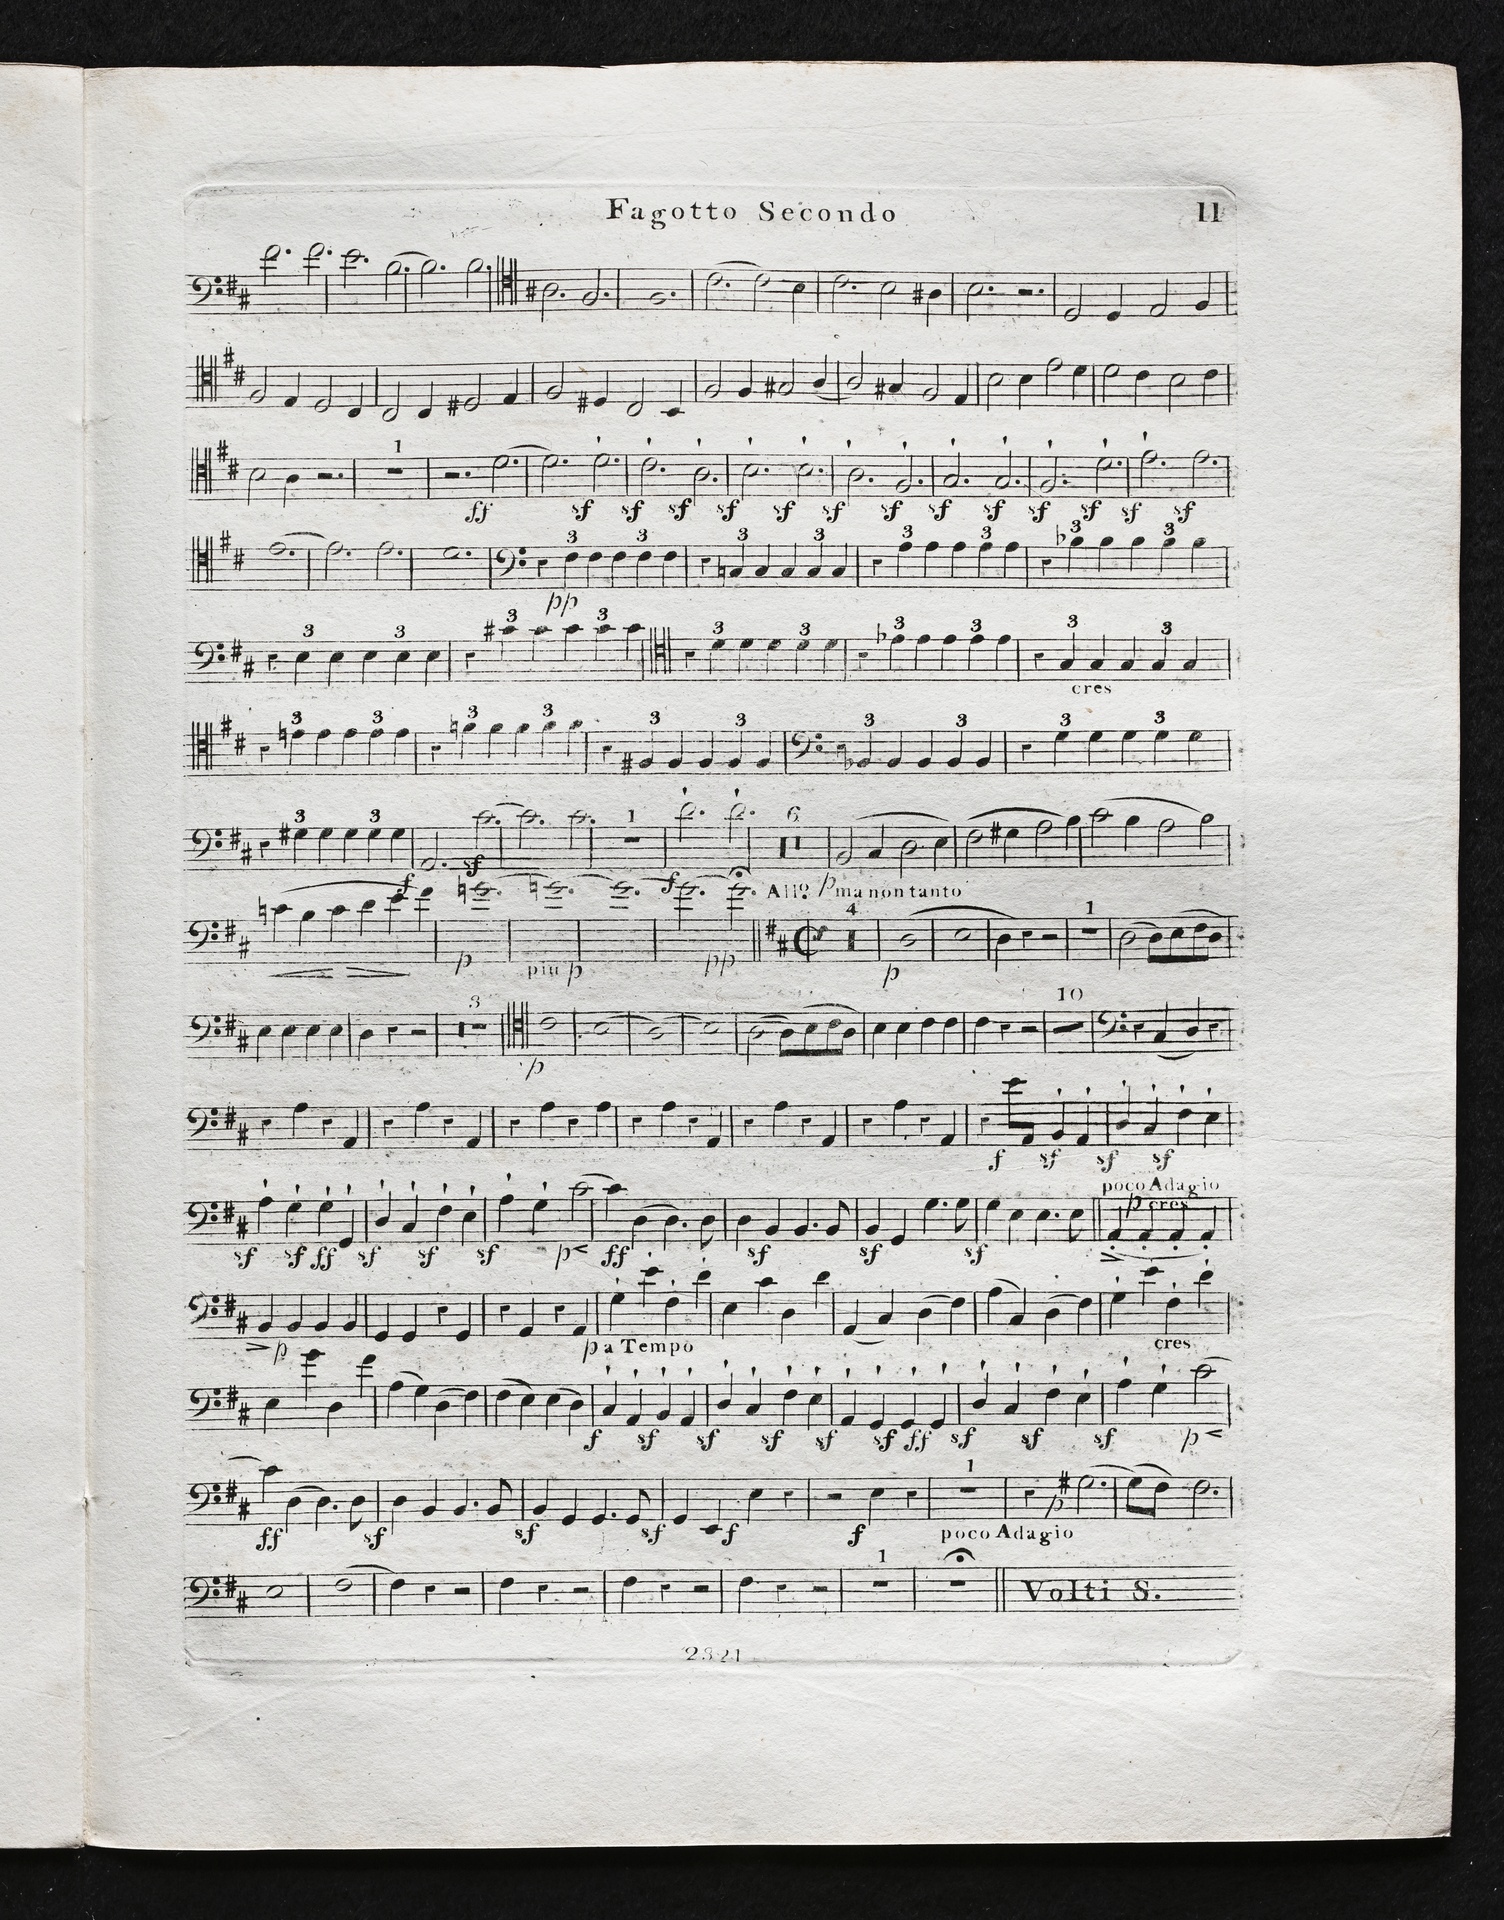 Fagotto Secondo
11
1
ff sf sf sf sf sf sf sf sf sf sf sf sf sf
3 3 3 3 3 3 3
pp
3 3 3 3 3 3 3 3 3 3
cres
3 3 3 3 3 3 3 3 3 3
3 3 1 6
f sf f p
Allo. ma non tanto
4 1
p piu p pp p
3 10
p
f sf sf sf
poco Adagio
p cres
sf sf ff sf sf sf p ff sf sf sf
p p a Tempo cres
f sf sf sf sf sf ff sf sf sf p
1
p
ff sf sf sf f f poco Adagio
1
Volti S.
2321